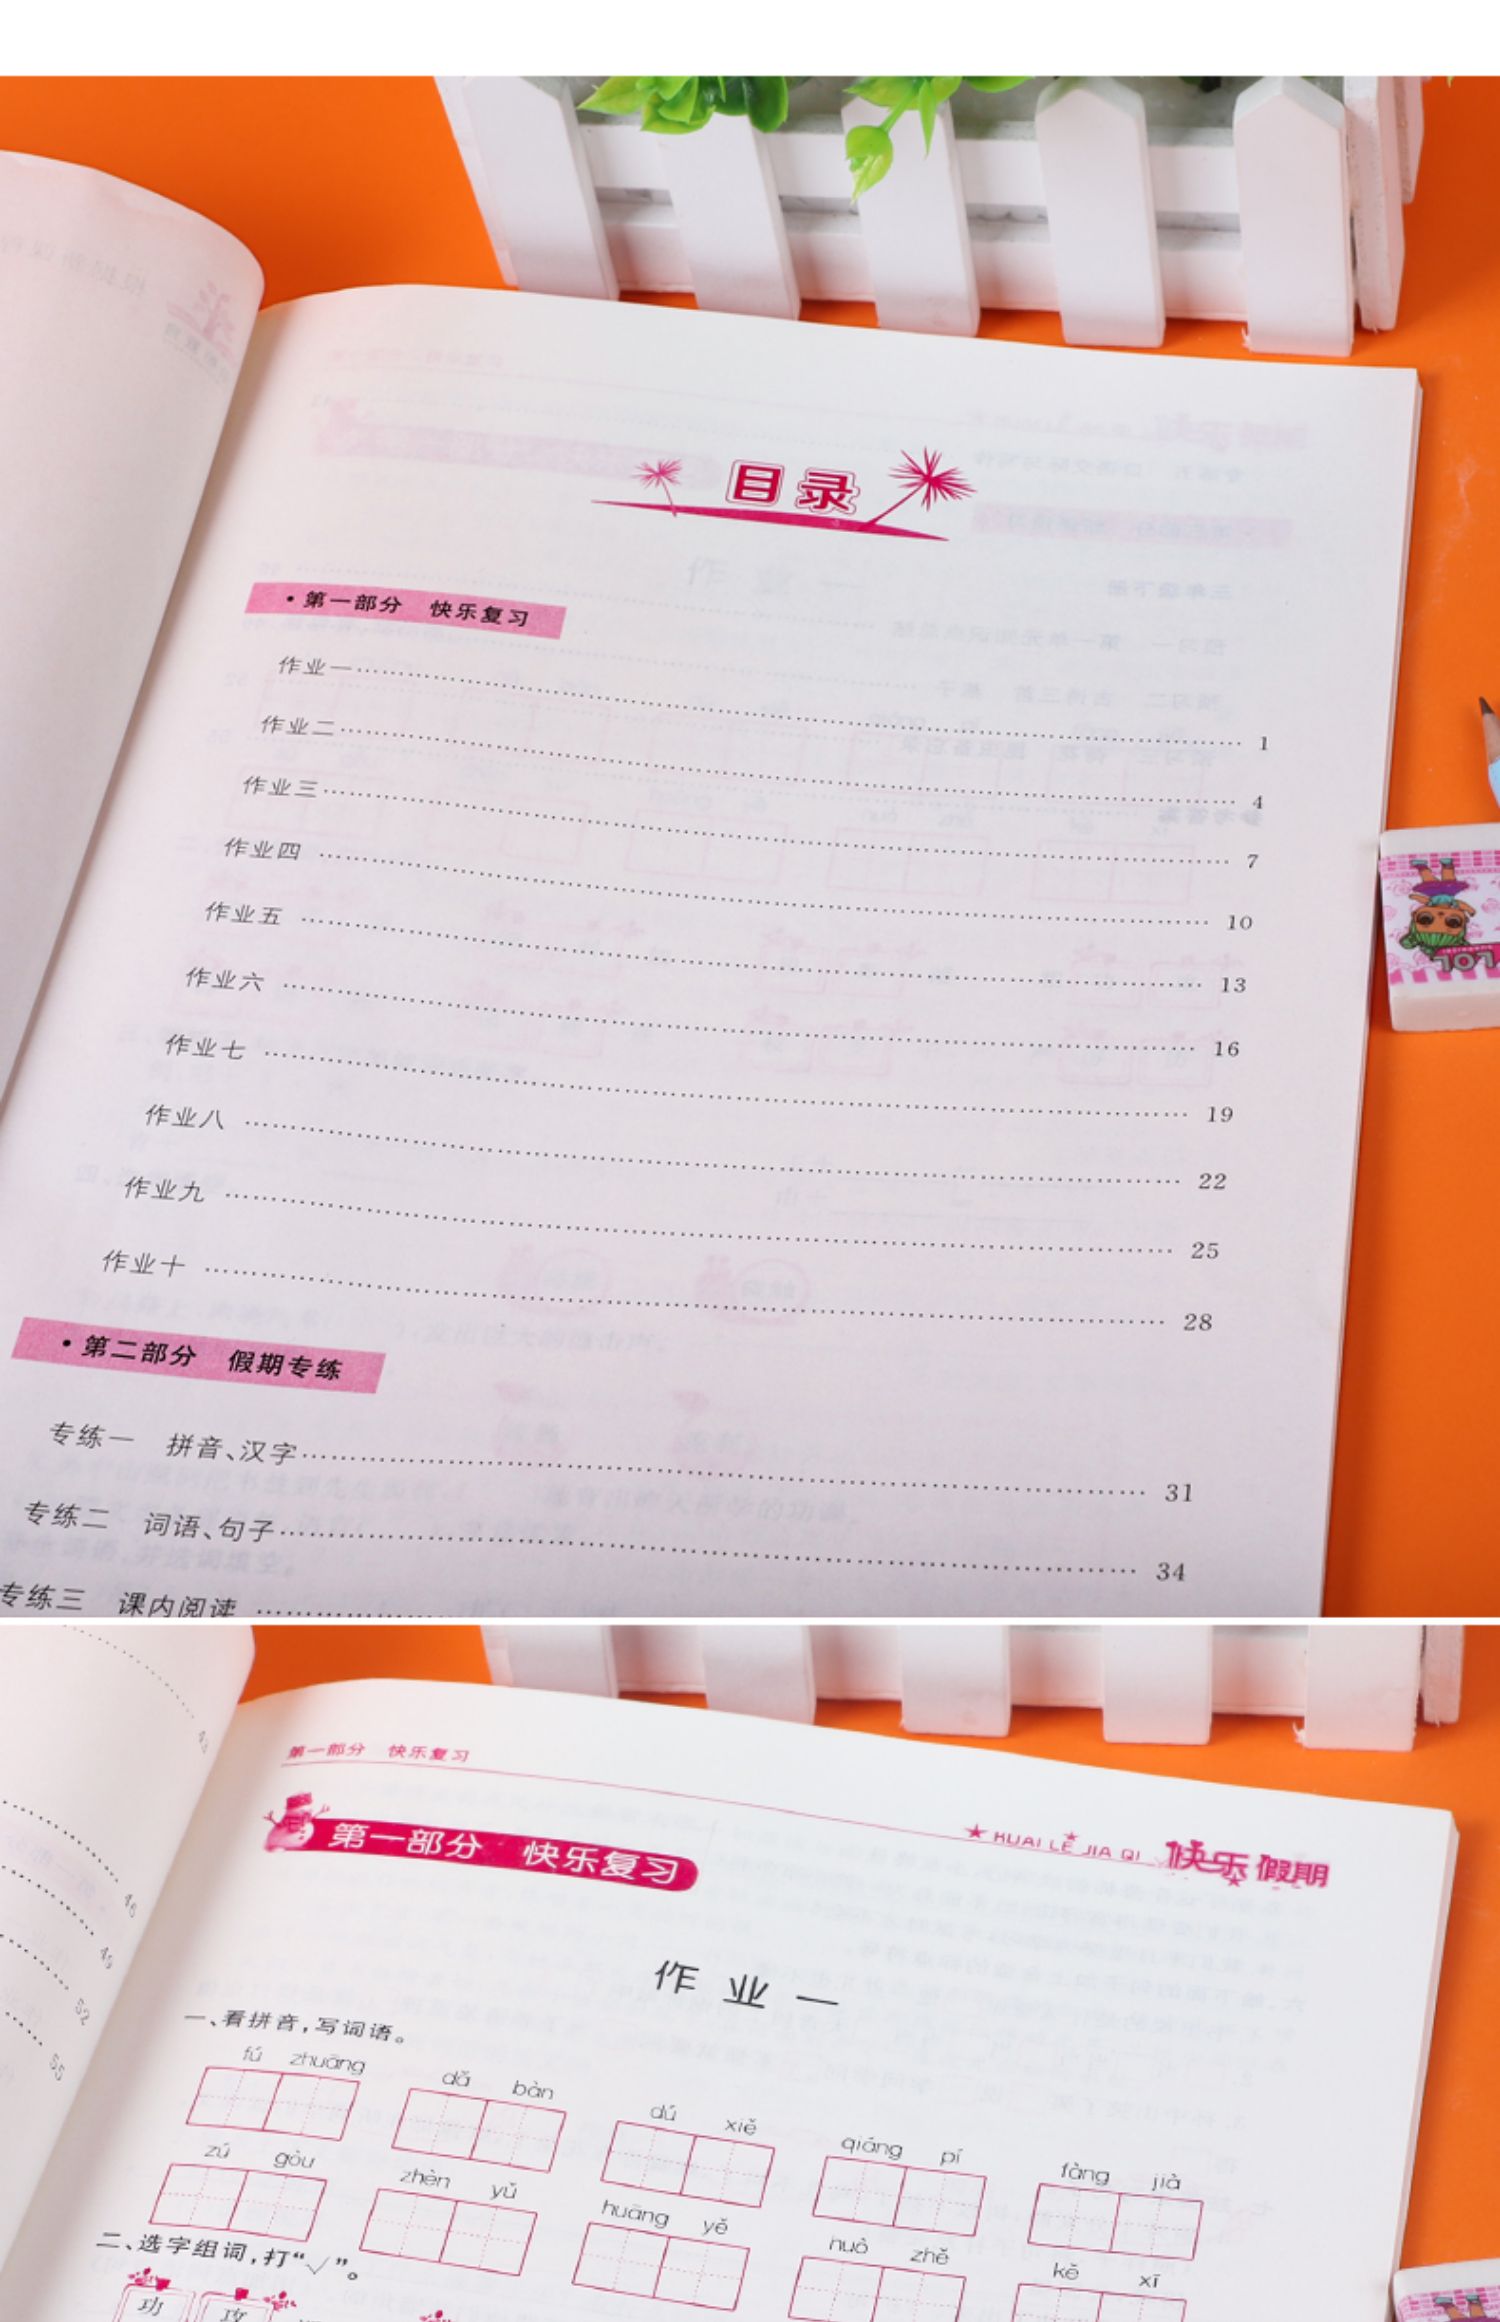 目录
·第一部分 快乐复习
作业一 1
作业二 4
作业三 7
作业四 10
作业五 13
作业六 16
作业七 19
作业八 22
作业九 25
作业十 28
·第二部分 假期专练
专练一 拼音、汉字 31
专练二 词语、句子 34
专练三 课内阅读
LOL
43
46
49
52
55
第一部分 快乐复习
KUAI LE JIA QI 快乐假期
第一部分 快乐复习
作业一
一、看拼音,写词语。
fú zhuāng dǎ bàn dú xiě qiáng pí fàng jià
zú gòu zhèn yǔ huāng yě huò zhě kě xī
二、选字组词,打“√”。
功 攻